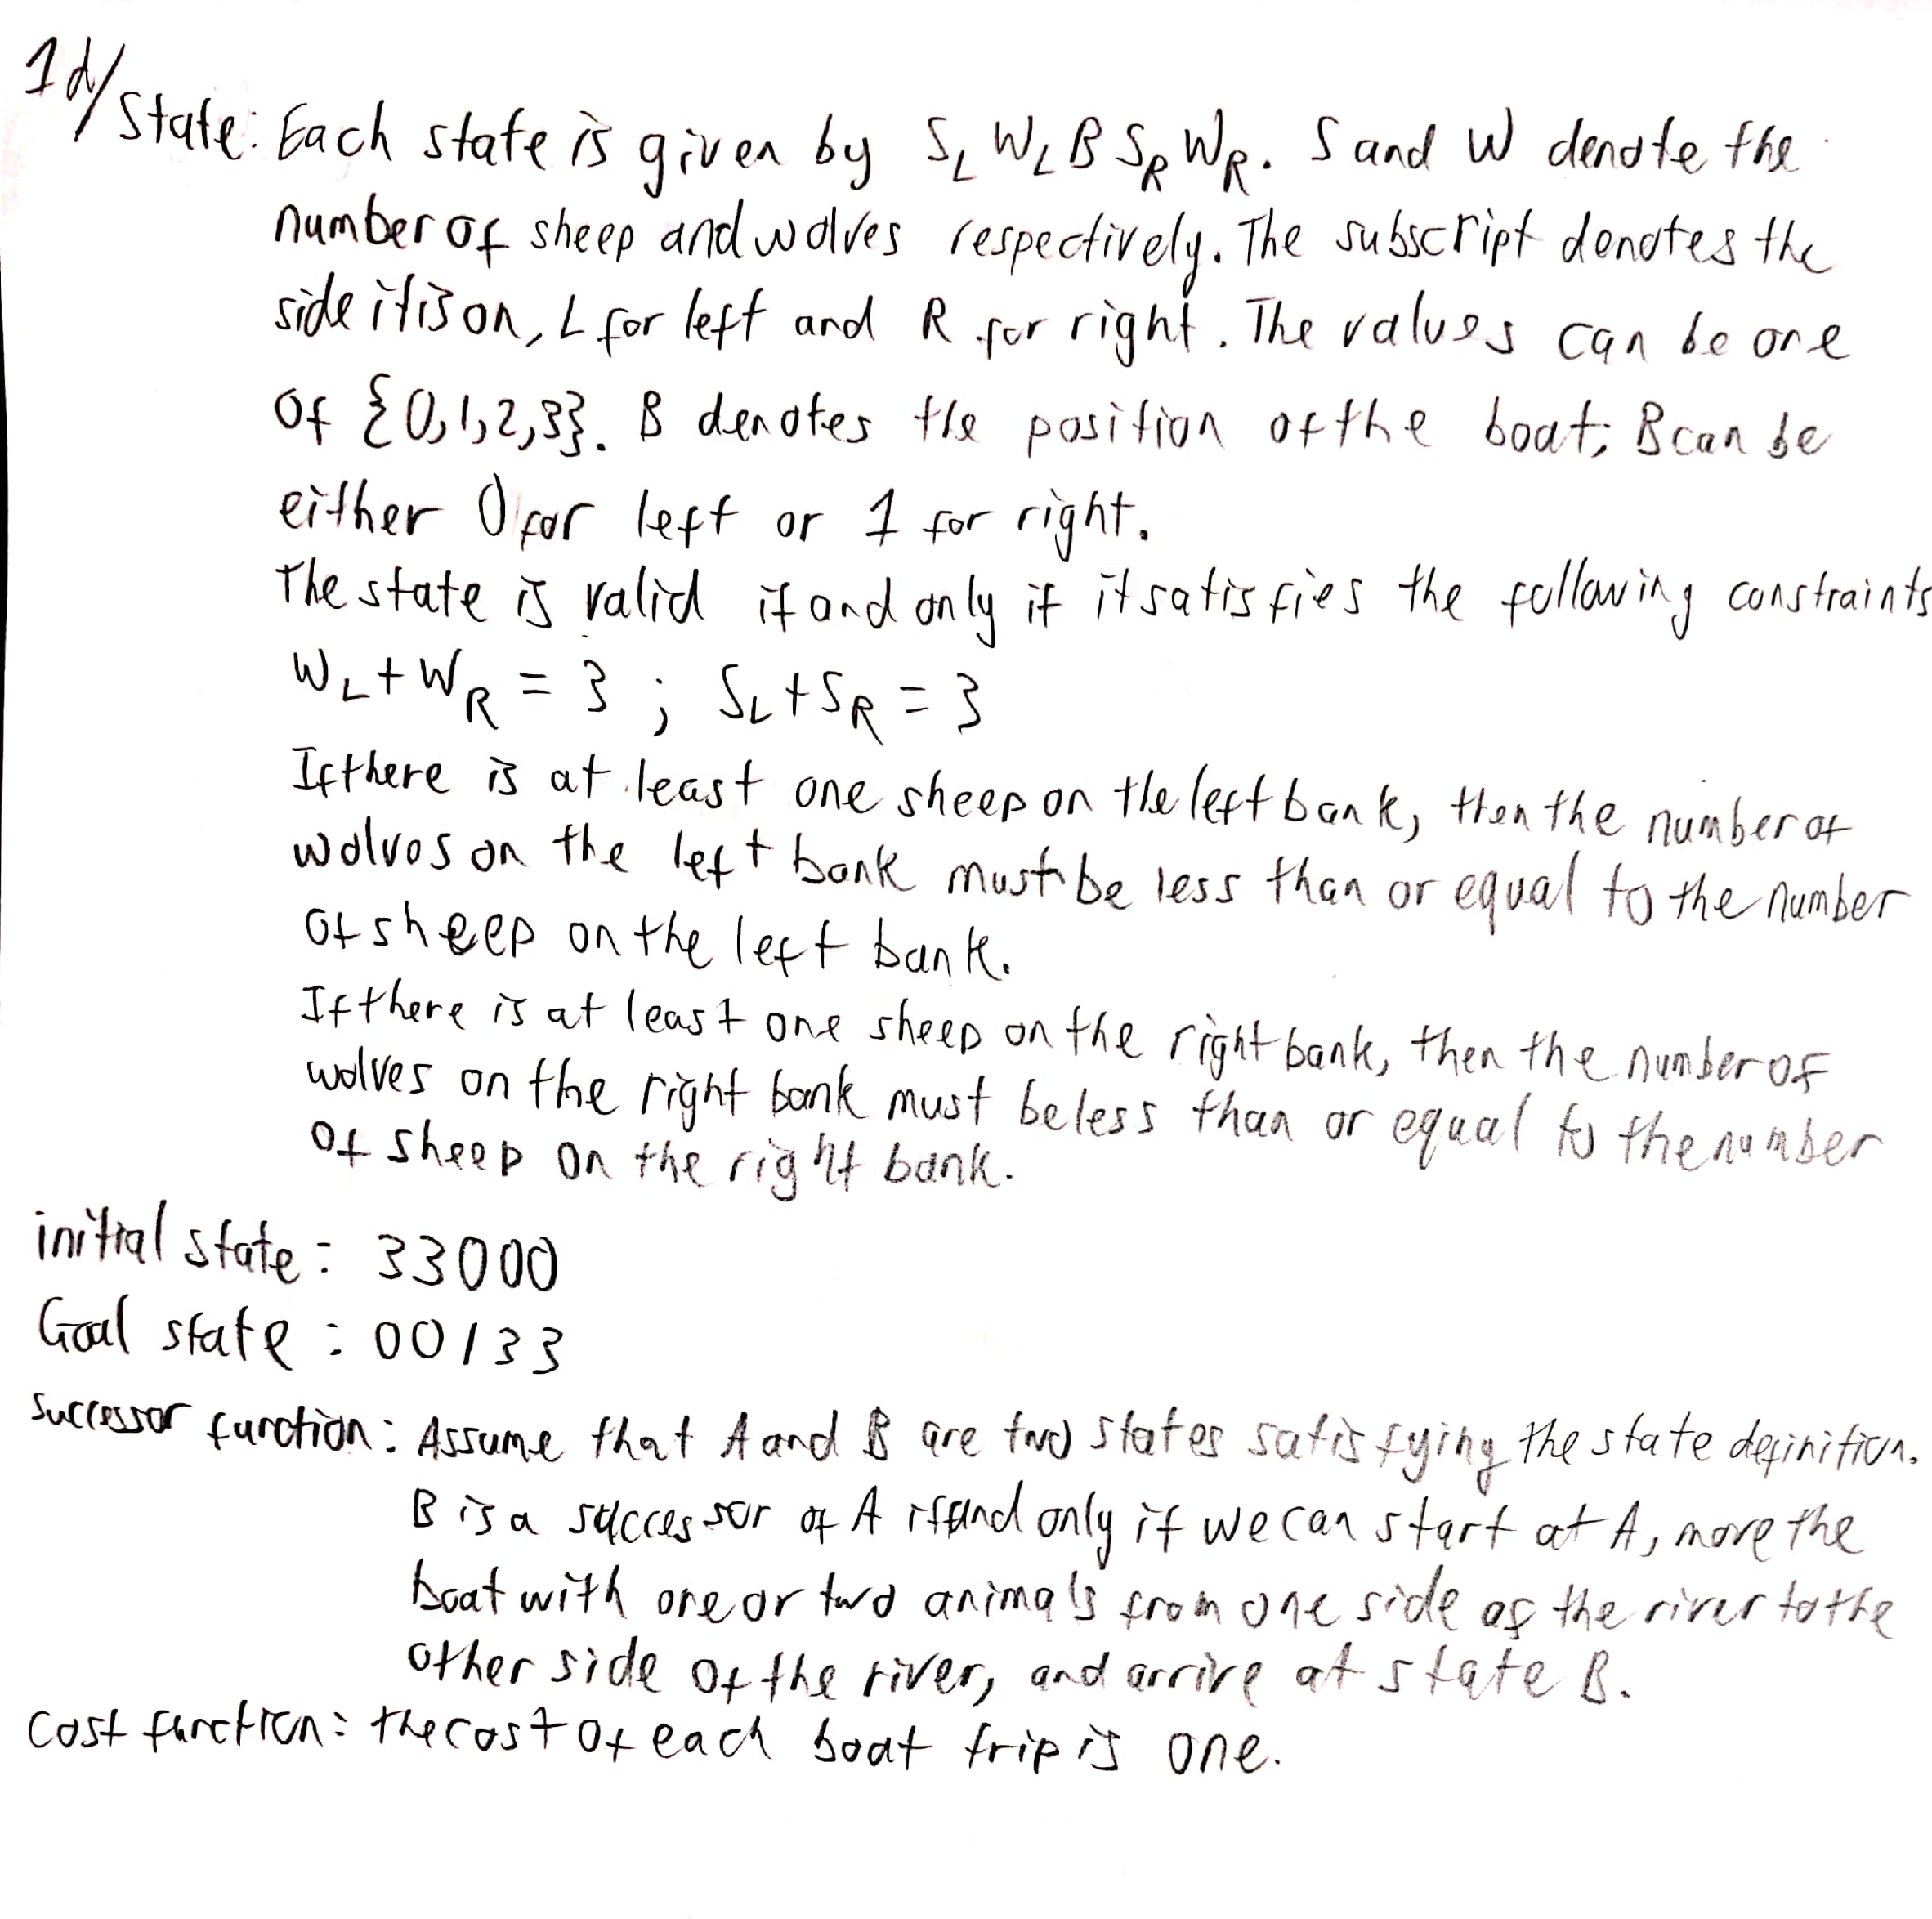 1d/
State: Each state is given by S_L W_L B S_R W_R. S and W denote the
number of sheep and wolves respectively. The subscript denotes the
side it is on, L for left and R for right. The values can be one
of {0,1,2,3}. B denotes the position of the boat; B can be
either 0 for left or 1 for right.
The state is valid if and only if it satisfies the following constraints
W_L + W_R = 3 ; S_L + S_R = 3
If there is at least one sheep on the left bank, then the number of
wolves on the left bank must be less than or equal to the number
of sheep on the left bank.
If there is at least one sheep on the right bank, then the number of
wolves on the right bank must be less than or equal to the number
of sheep on the right bank.
initial state: 33000
Goal state: 00133
Successor function: Assume that A and B are two states satisfying the state definition.
B is a successor of A if and only if we can start at A, move the
boat with one or two animals from one side of the river to the
other side of the river, and arrive at state B.
Cost function: the cost of each boat trip is one.